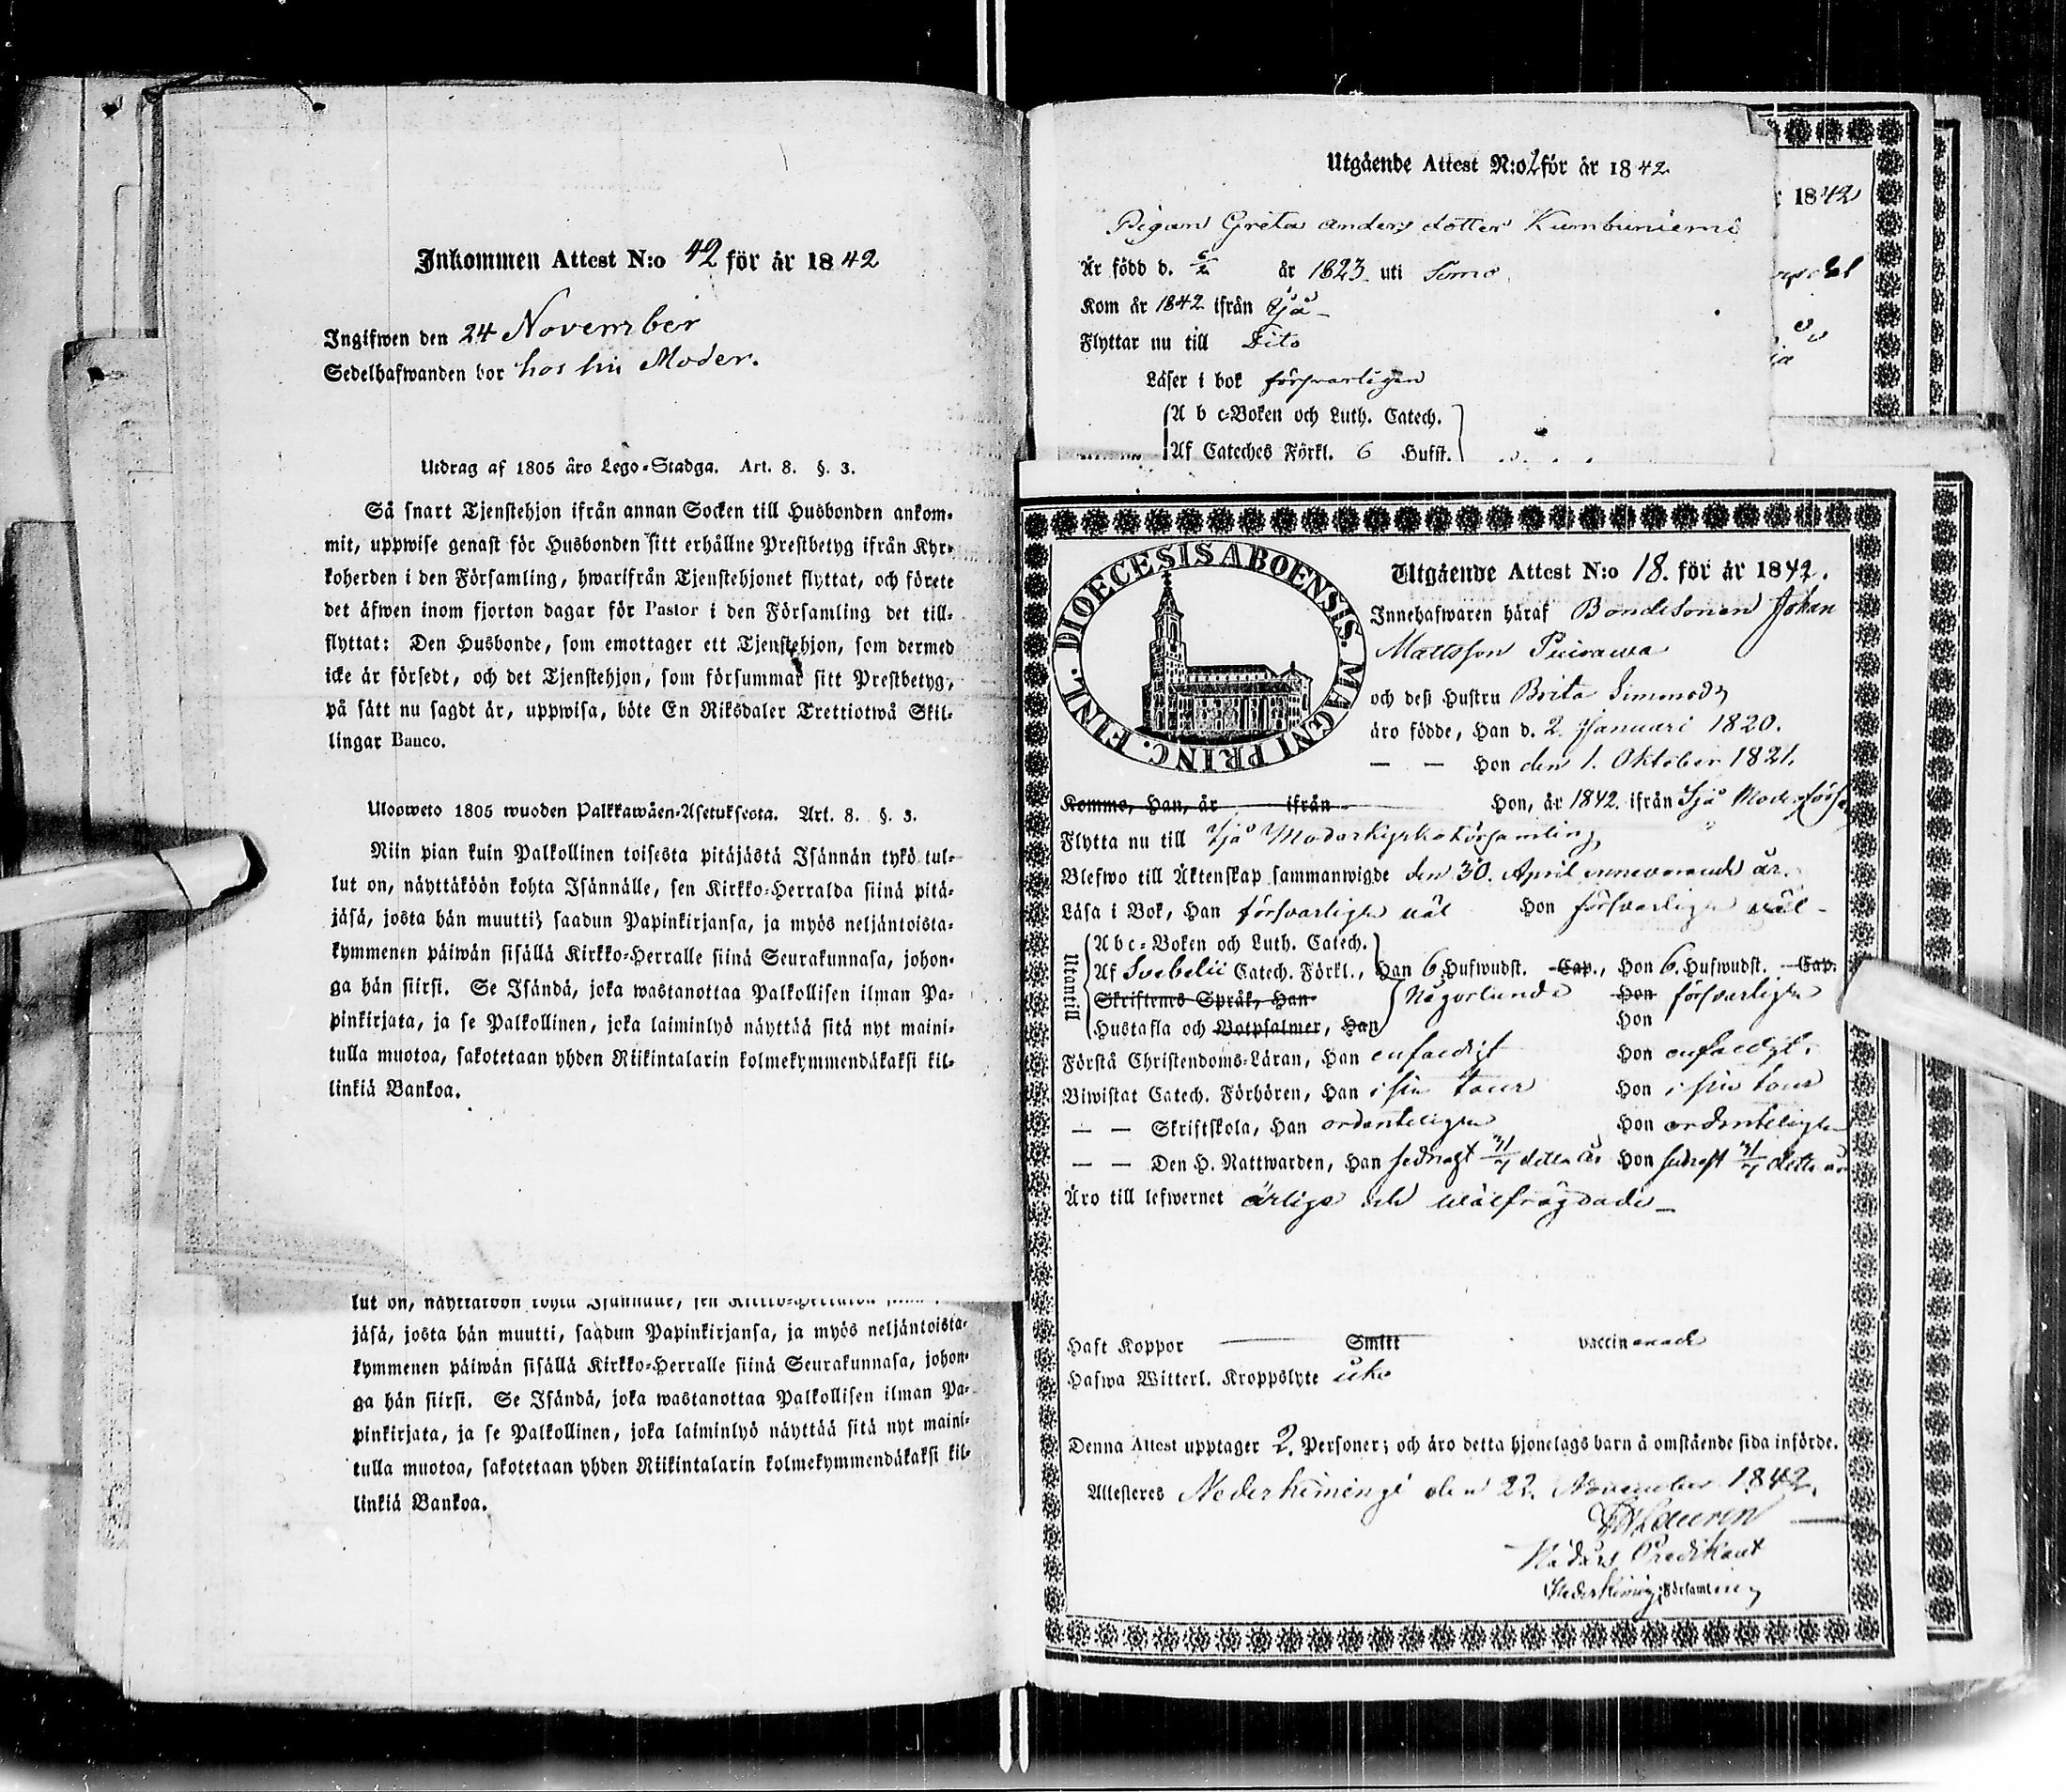 Inkommen Attest N:o 42 för år 1842
Ingifwen den 24 November
Sedelhafwanden bor hos sin Moder.
Utdrag af 1805 års Lego-Stadga. Art. 8. §. 3.
Så snart Tjenstehjon ifrån annan Socken till Husbonden ankom-
mit, uppwise genast för Husbonden sitt erhållne Prestbetyg ifrån Kyr-
koherden i den Församling, hwarifrån Tjenstehjonet flyttat, och förete
det äfwen inom fjorton dagar för Pastor i den Församling det till-
flyttat: Den Husbonde, som emottager ett Tjenstehjon, som dermed
icke är försedt, och det Tjenstehjon, som försummar sitt Prestbetyg,
på sätt nu sagdt är, uppwisa, böte En Riksdaler Trettiotwå Skil-
lingar Banco.
Ulosweto 1805 wuoden Palkkawäen-Asetuksesta. Art. 8. §. 3.
Niin pian kuin Palkollinen toisesta pitäjästä Isännän tykö tul-
lut on, näyttäköön kohta Isännälle, sen Kirkko-Herralda siinä pitä-
jäsä, josta hän muutti, saadun Papinkirjansa, ja myös neljäntoista-
kymmenen päiwän sisällä Kirkko-Herralle siinä Seurakunnasa, johon-
ga hän siirsi. Se Isändä, joka wastanottaa Palkollisen ilman Pa-
pinkirjata, ja se Palkollinen, joka laiminlyö näyttää sitä nyt maini-
tulla muotoa, sakotetaan yhden Riikintalarin kolmekymmendäkaksi kil-
linkiä Bankoa.
lut on, näyttäköön kohta Isännälle, sen Kirkko-Herralda
jäsä, josta hän muutti, saadun Papinkirjansa, ja myös neljäntoista-
kymmenen päiwän sisällä Kirkko-Herralle siinä Seurakunnasa, johon-
ga hän siirsi. Se Isändä, joka wastanottaa Palkollisen ilman Pa-
pinkirjata, ja se Palkollinen, joka laiminlyö näyttää sitä nyt maini-
tulla muotoa, sakotetaan yhden Riikintalarin kolmekymmendäkaksi kil-
linkiä Bankoa.
Utgående Attest N:o 2 för år 1842
Pigan Greta Anders dotter Kumbuniemi
Är född d. år 1823 uti Simo
Kom år 1842 ifrån Ijå
Flyttar nu till Dito
Läser i bok försvarligen
A b c-Boken och Luth. Catech.
Af Cateches Förkl. 6 Hufst.
1842
DIOECESIS ABOENSIS. MAGNI PRINC. FINL.
Utgående Attest N:o 18. för år 1842.
Innehafwaren häraf Bondesonen Johan
Mattsson
och dess Hustru Brita Simmonsdr
äro födde, Han d. 2. Januari 1820.
— — Hon den 1. Oktober 1821.
Kommo, Han, år ifrån Hon, år 1842. ifrån Ijå Moderförs.
Flytta nu till Ijå Moderkyrkoförsamling,
Blefwo till Äktenskap sammanwigde den 30. April innevarande år.
Läsa i Bok, Han försvarligen väl Hon försvarligen väl
Utantill
A b c-Boken och Luth. Catech.
Af Svebelii Catech. Förkl., Han 6. Hufwudst. Cap., Hon 6. Hufwudst. Cap.
Skriftenes Språk, Han Någorlunda Hon försvarligen
Hustafla och Botpsalmer, Han Hon
Förstå Christendoms-Läran, Han enfaldigt Hon enfaldigt.
Biwistat Catech. Förhören, Han i sin tour Hon i sin tour
— — Skriftskola, Han ordenteligen Hon ordenteligen
— — Den H. Nattwarden, Han sednast detta år Hon sednast detta år
Äro till lefwernet ärlige och wälfrägdade
Haft Koppor Smitt vaccinerade
Hafwa Witterl. Kroppslyte icke
Denna Attest upptager 2. Personer; och äro detta hjonelags barn å omstående sida införde.
Attesteres Nederkiminge den 22. November 1842.
Lauren
Nådårs Predikant
Nederkiminge Församling